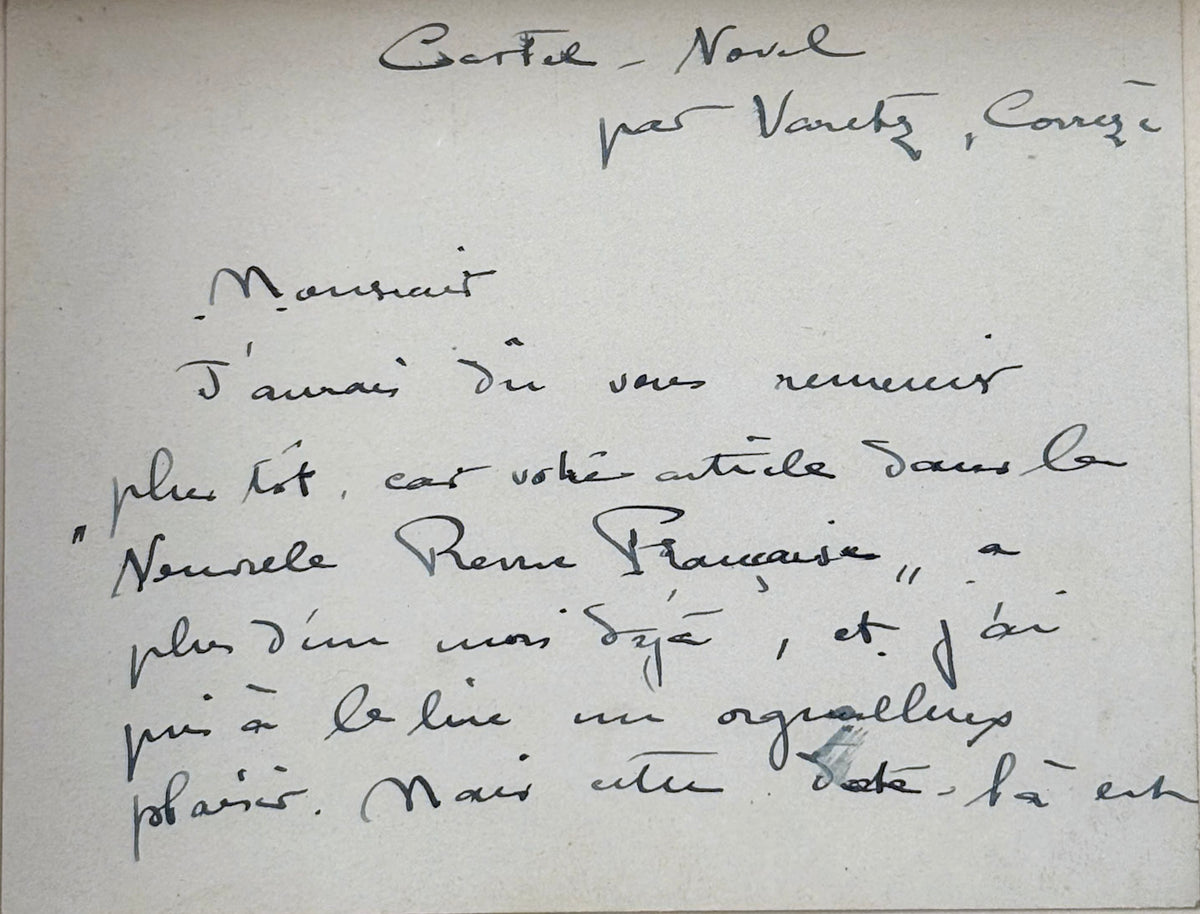 Castel - Novel
par Varetz, Corrèze
Monsieur
J'aurais dû vous remercier
plus tôt, car votre article dans la
"Nouvelle Revue Française" a
plus d'un mois déjà, et j'ai
pris à le lire un orgueilleux
plaisir. Mais cette date-là est